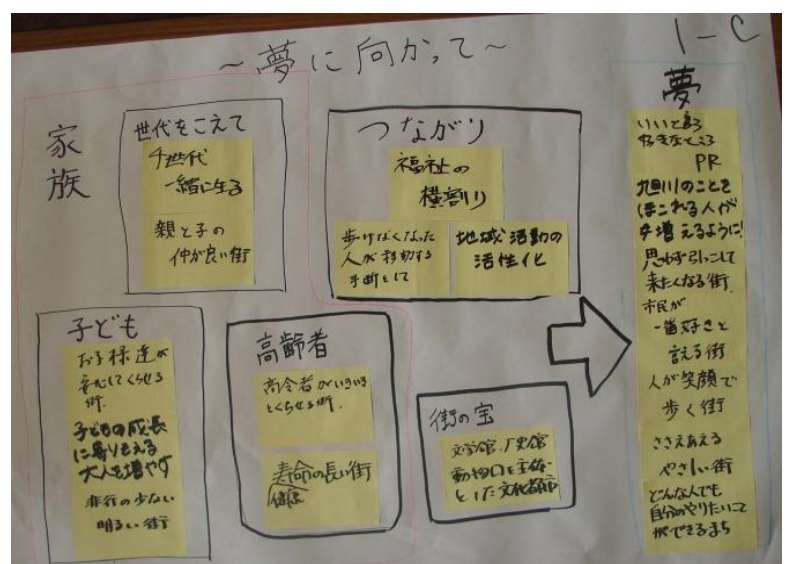 ～夢に向かって～
1-C
家族
世代をこえて
千世代
一緒に生る
親と子の
仲が良い街
つながり
福祉の
横割り
歩けなくなった
人が移動する
手断として
地域活動の
活性化
子ども
お子様達が
安心してくらせる
街.
子どもの成長
に寄りそえる
大人を増やす
非行の少ない
明るい街
高齢者
高令者がいきいき
とくらせる街.
寿命の長い街
健康
街の宝
文学館.歴史館
動物口を主体
とした文化都市
夢
いいところ
好きなところ
PR
旭川のことを
ほこれる人が
増えるように!
思わず引っこして
来たくなる街.
市民が
一番好きと
言える街
人が笑顔で
歩く街
ささえあえる
やさしい街
どんな人でも
自分のやりたいこと
ができるまち